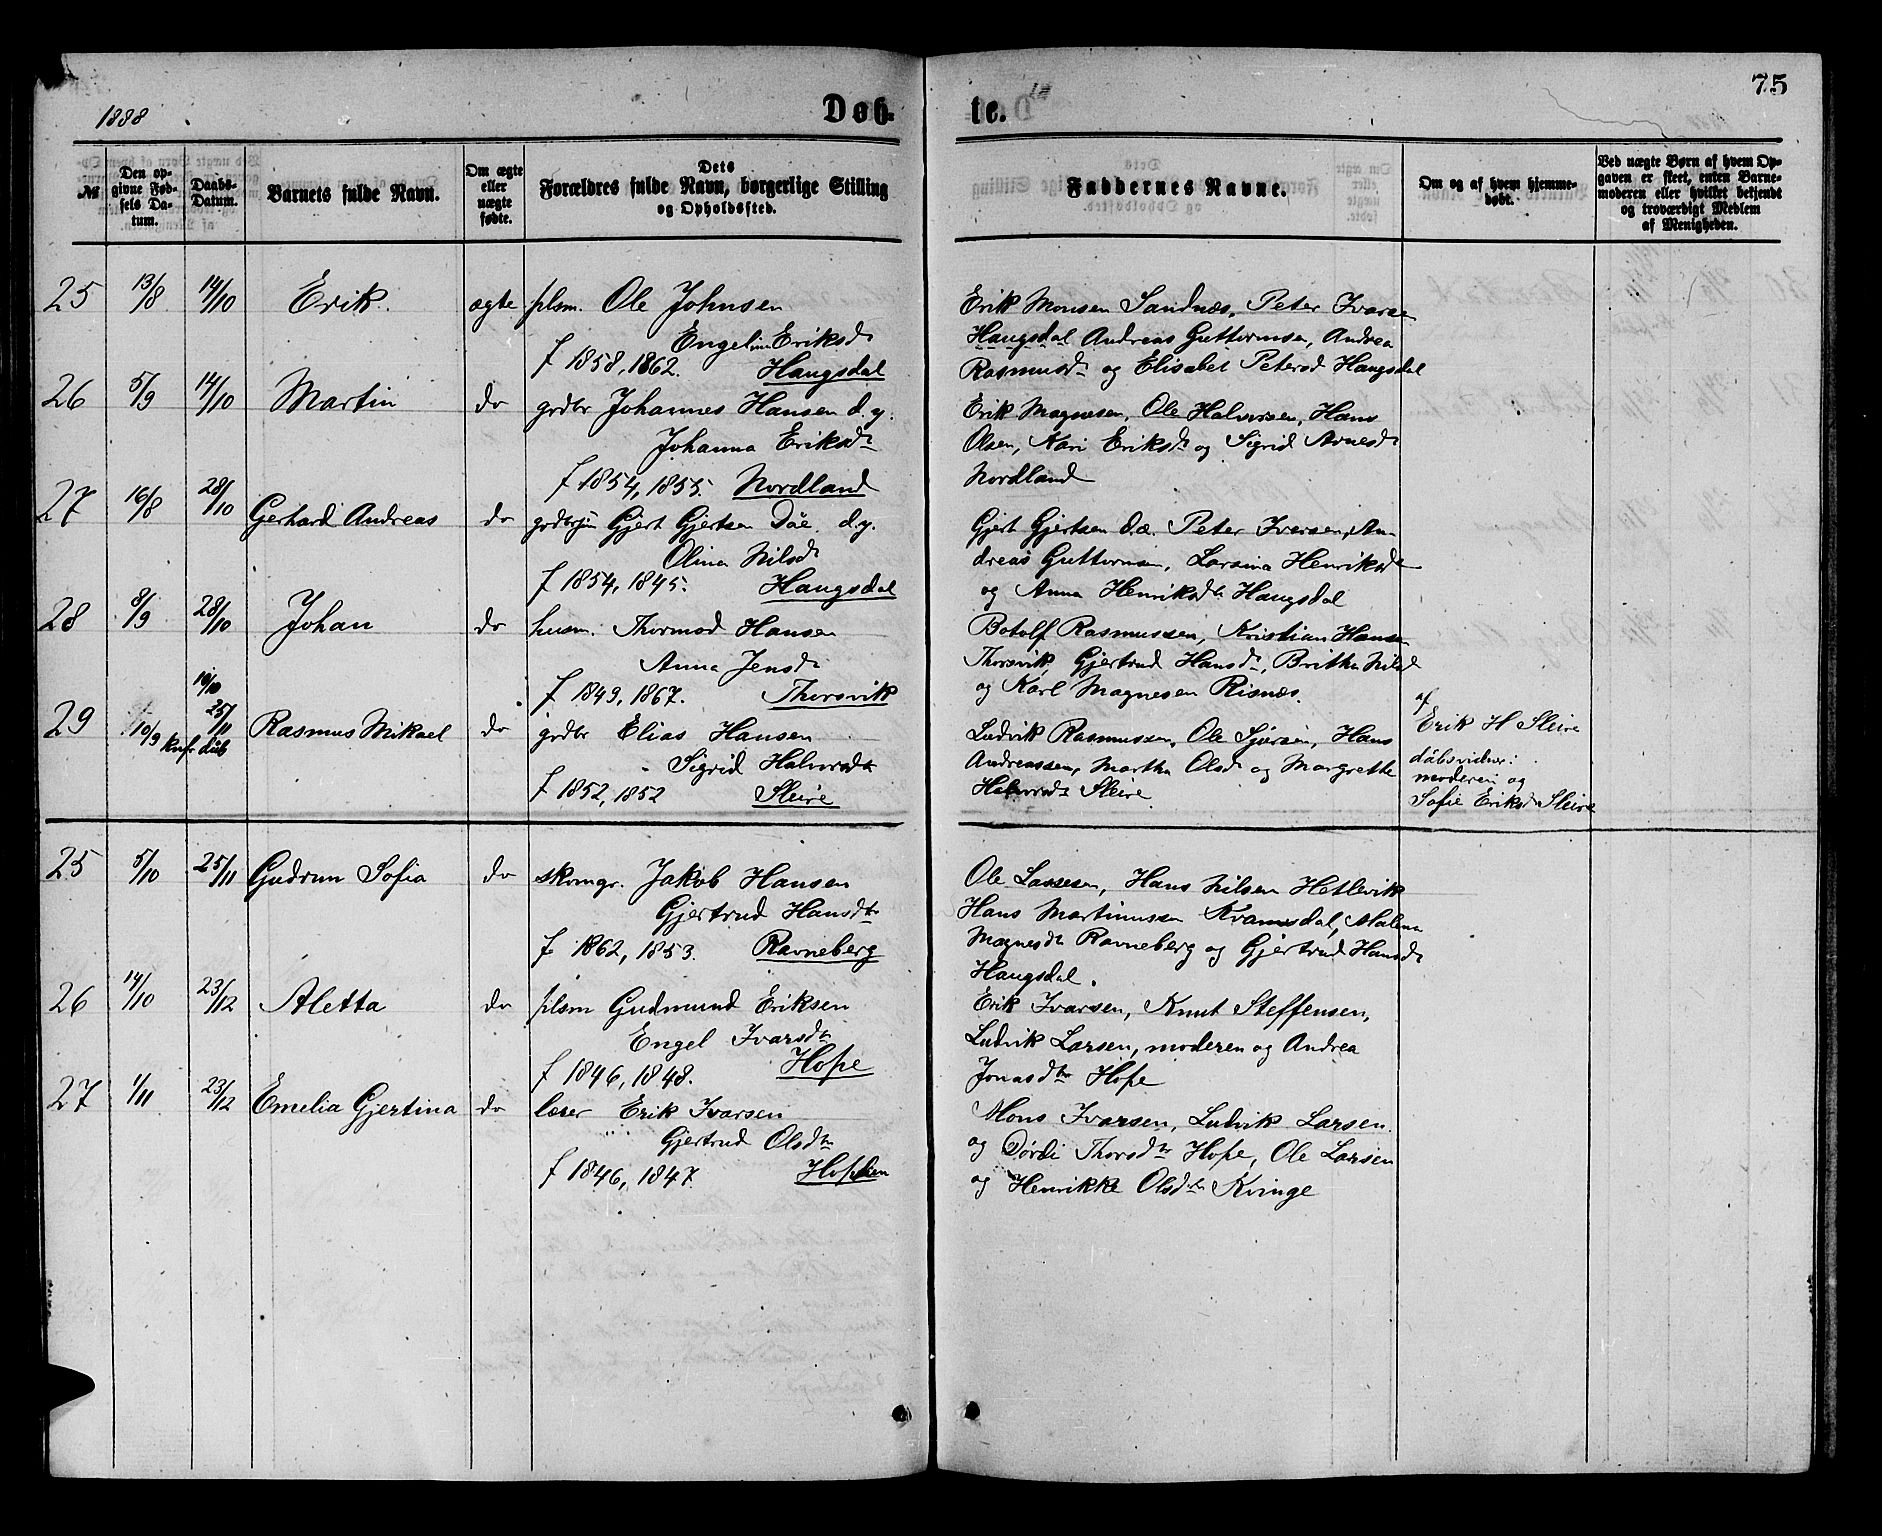 75
1888
Døb-
te.
№
Den opgivne Fødsels Datum.
Daabs-Datum.
Barnets fulde Navn.
Om ægte eller uægte fødte.
Dets Forældres fulde Navn, borgerlige Stilling og Opholdssted.
Faddernes Navne.
Om og af hvem hjemmedøbt.
Ved uægte Børn af hvem Opgaven er skeet, enten Barnemoderen eller hvilket bekjendt og troværdigt Medlem af Menigheden.
25 13/8 14/10 Erik. ægte plsm. Ole Johnsen
Engeline Eriksdr
f 1858, 1862. Haugsdal
Erik Monsen Sandnæs, Peter Ivarsen
Haugsdal Andreas Guttormsen, Andrea
Rasmusdr og Elisabet Petersd Haugsdal
26 5/9 14/10 Martin do grdbr Johannes Hansen d.y.
Johanna Eriksdr
f 1854, 1855. Nordland
Erik Magnesen, Ole Halvorsen, Hans
Olsen, Kari Eriksdr og Sigrid Arnesdr
Nordland
27 16/8 28/10 Gerhard Andreas do Gjert Gjertsen Døe. d.y.
Olina Nilsdr
f 1854, 1845. Haugsdal
Gjert Gjertsen d.æ. Peter Iversen, An-
dreas Guttormsen, Larsina Henriksdr
og Anna Henriksdr Haugsdal
28 8/9 28/10 Johan do husm. Thormod Hansen
Anna Jensdr
f 1849, 1867. Thorsvik
Botolf Rasmussen, Kristian Hansen
Thorsvik, Gjertrud Hansdr, Britha Nilsd
og Karl Magnesen Risnæs.
29 10/9 19/10 25/11 Rasmus Mikael do grdbr Elias Hansen
konf. dåb
Sigrid Halvorsdtr
f 1852, 1852 Sleire
Ludvik Rasmussen, Ole Sjursen, Hans
Andreassen, Martha Olsdr og Margrethe
Halvorsdr Sleire.
af
Erik H Sleire
dåbsvidner:
moderen og
Sofie Eriksdr Sleire
25 5/10 25/11 Gudrun Sofia do skomgr. Jakob Hansen
Gjertrud Hansdtr
f 1862, 1853. Ravneberg
Ole Lassesen, Hans Nilsen Hetlevik
Hans Martinussen Kvamsdal, Malena
Magnesdr Ravneberg og Gjertrud Hansdr
Haugsdal.
26 14/10 23/12 Aletta do plsm Gudmund Eriksen
Engel Ivarsdtr
f 1846, 1848. Hope
Erik Ivarsen, Knut Steffensen,
Ludvik Larsen, moderen og Andrea
Jonasdtr Hope
27 1/11 23/12 Emelia Gjertina do lærer Erik Ivarsen
Gjertrud Olsdtr
f 1846, 1847.
Mons Ivarsen, Ludvik Larsen
og Dørdi Thorsdtr Hope, Ole Larsen
og Henrikke Olsdtr Kvinge